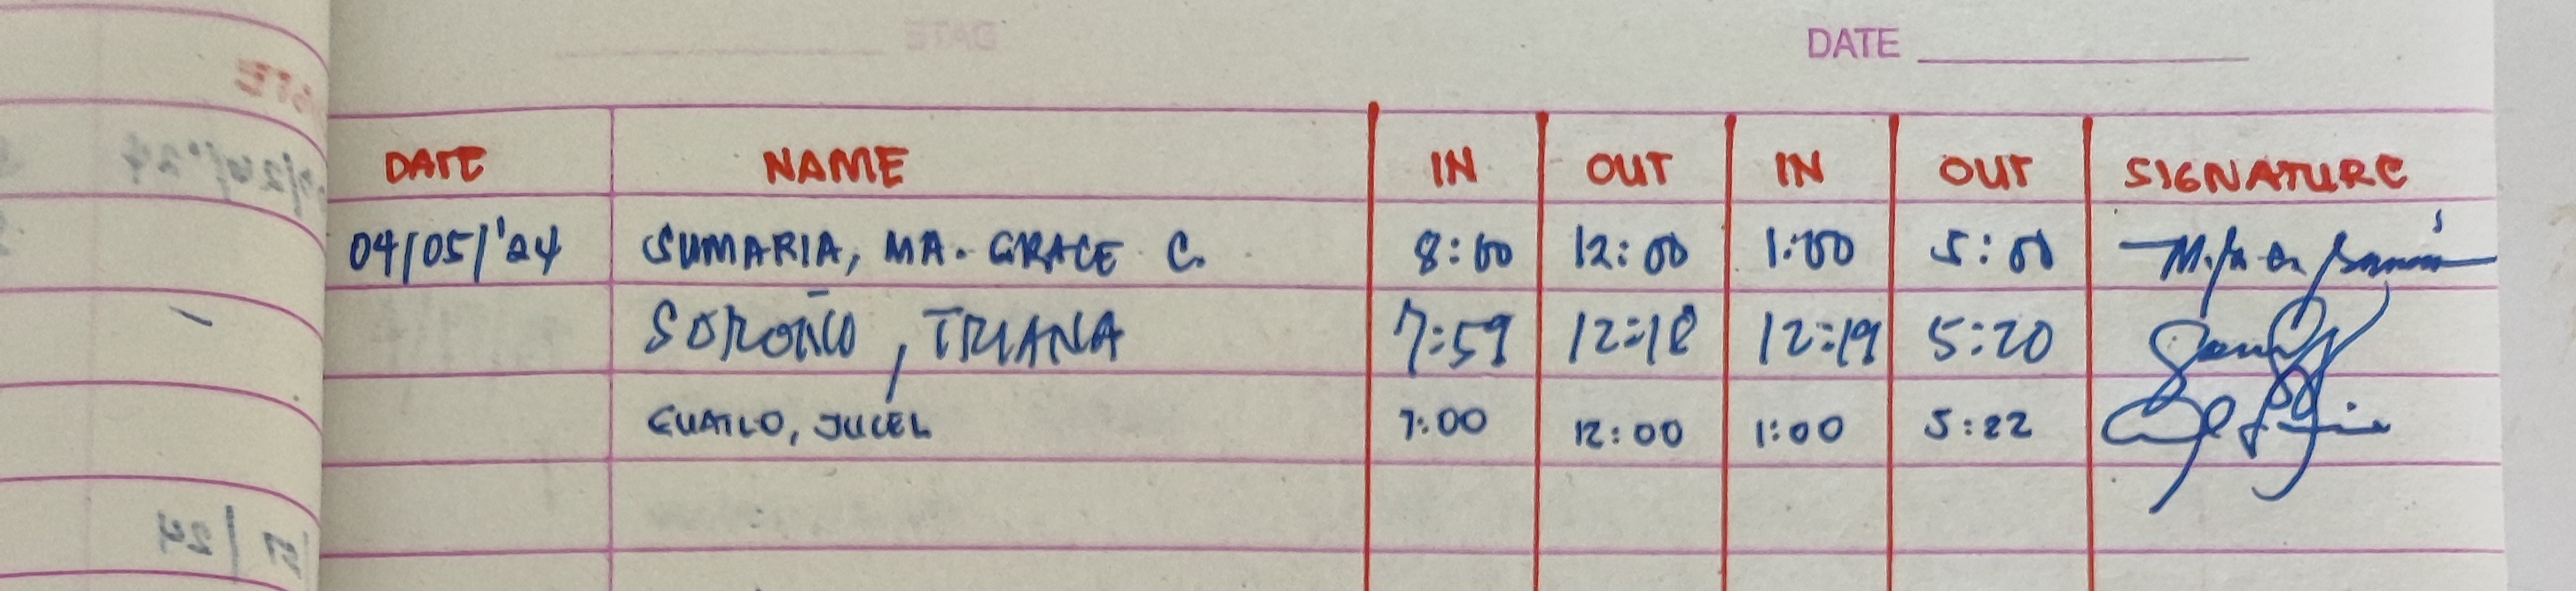 DATE
DATE NAME IN OUT IN OUT SIGNATURE
04/05/'24 SUMARIA, MA. GRACE C. 8:00 12:00 1:00 5:00
SOROÑO, TRIANA 7:59 12:18 12:19 5:20
GUATLO, JUCEL 7:00 12:00 1:00 5:22